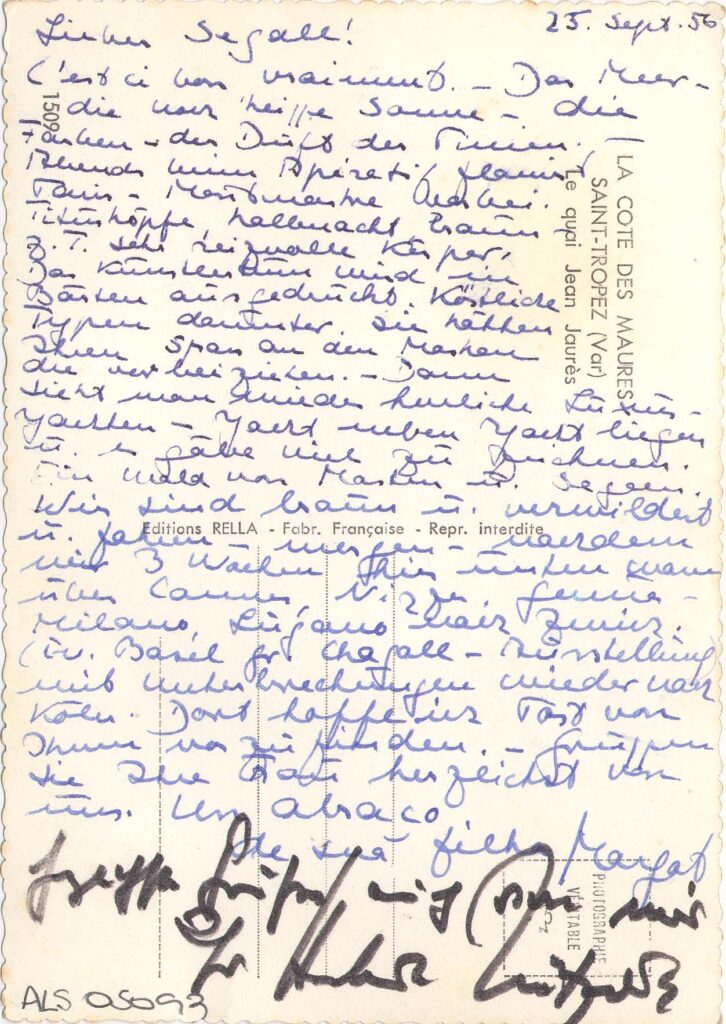 25. Sept. 56
Lieber Segall!
C'est ci bon vraiment. – Das Meer –
die noch heisse Sonne – die
Farben – der Duft der Pinien.
Abends beim Apéretif flaniert
Paris – Montmartre vorbei.
Tituskopfe, halbnackt, braun –
z. T. sehr reizvolle Körper.
Das Künstlertum wird in
Bärten ausgedrückt. Köstliche
Typen darunter. Sie hätten
Ihren Spass an den Masken
die vorbeiziehen. – Dann
sieht man wieder herrliche Luxus-
yachten – Yacht neben Yacht liegen
u. es gäbe viel zu zeichnen.
Ein Wald von Masten u. Segeln.
Wir sind braun u. verwildert
u. fahren – morgen – nachdem
wir 3 Wochen hier unten waren
über Cannes Nizza Genua –
Milano Lugano nach Zürich.
(u. Basel gr. Chagall – Ausstellung
mit Unterbrechungen wieder nach
Köln. Dort hoffe ich Post von
Ihnen vorzufinden. – Grüssen
Sie Ihre Frau herzlichst von
uns. Um abraco
Ihre Margot
Grüsse auch von mir
Ihr
1509
LA COTE DES MAURES
SAINT-TROPEZ (Var)
Le quai Jean Jaurès
Editions RELLA - Fabr. Française - Repr. interdite
PHOTOGRAPHIE
VÉRITABLE
ALS 05093